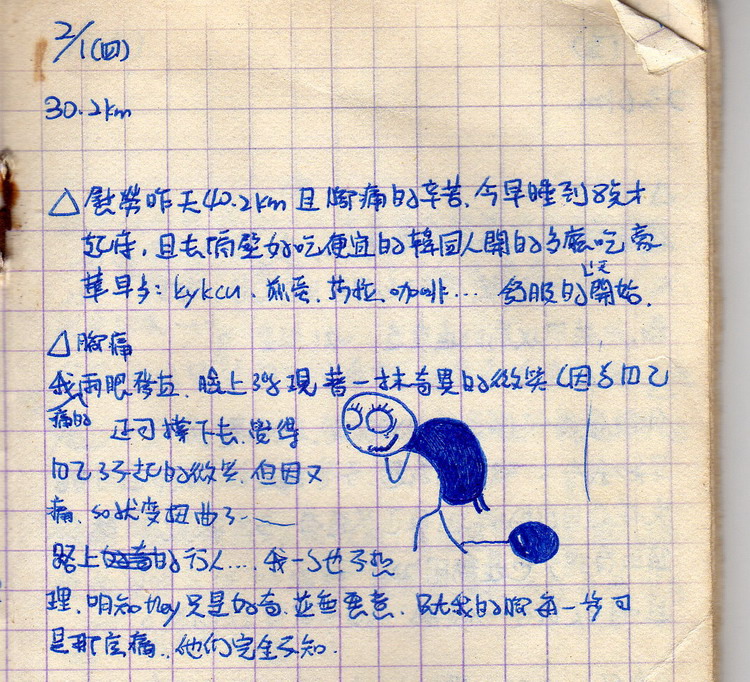 2/1(四)
30.2km
△慰勞昨天40.2km且腳痛的辛苦，今早睡到8点才
起床，且去隔壁好吃便宜的韓国人開的多麼吃豪
華早歺：kykcu、煎蛋、芬拉、咖啡… 舒服的開始.
△腳痛
我兩眼發直，臉上浮現著一抹奇異的微笑（因為自己
痛的
还可撐下去，覺得
自己了不起的微笑，但因又
痛，所以就变扭曲了~
路上的行人…. 我一久也不想
理，明知they只是好奇，並無惡意，但我的腳每一步可
是那広痛，他们完全不知.